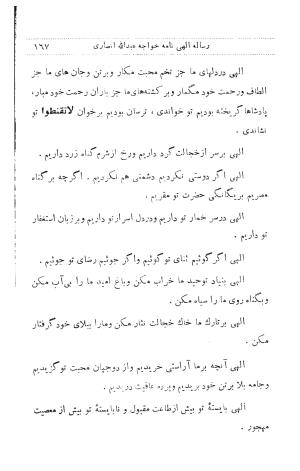 رساله الهی نامه خواجه عبدالله انصاری ۱۶۷
الهی دردلهای ما جز تخم محبت مکار وبرتن وجان های ما جز
الطاف ورحمت خود مگمار وبر کشته‌های ما جز باران رحمت خود مبار،
پادشاها گریخته بودیم تو خواندی، ترسان بودیم برخوان لاتقنطوا تو
نشاندی .
الهی برسر ازخجالت گرد داریم ورخ ازشرم گناه زرد داریم .
الهی اگر دوستی نکردیم دشمنی هم نکردیم . اگرچه برگناه
مصریم بریگانگی حضرت تو مقریم .
الهی درسر خمار تو داریم ودردل اسرار تو داریم وبرزبان استغفار
تو داریم .
الهی اگرگوئیم ثنای توگوئیم واگر جوئیم رضای تو جوئیم .
الهی بنیاد توحید ما خراب مکن وباغ امید ما را بی‌آب مکن
وبگناه روی ما را سیاه مکن .
الهی برتارك ما خاك خجالت نثار مکن ومارا ببلای خود گرفتار
مکن .
الهی آنچه برما آراستی خریدیم واز دوجهان محبت تو گزیدیم
وجامه بلا برتن خود بریدیم وپرده عافیت دریدیم .
الهی بایستهٔ تو بیش ازطاعت مقبول و نابایستهٔ تو بیش از معصیت
مهجور .